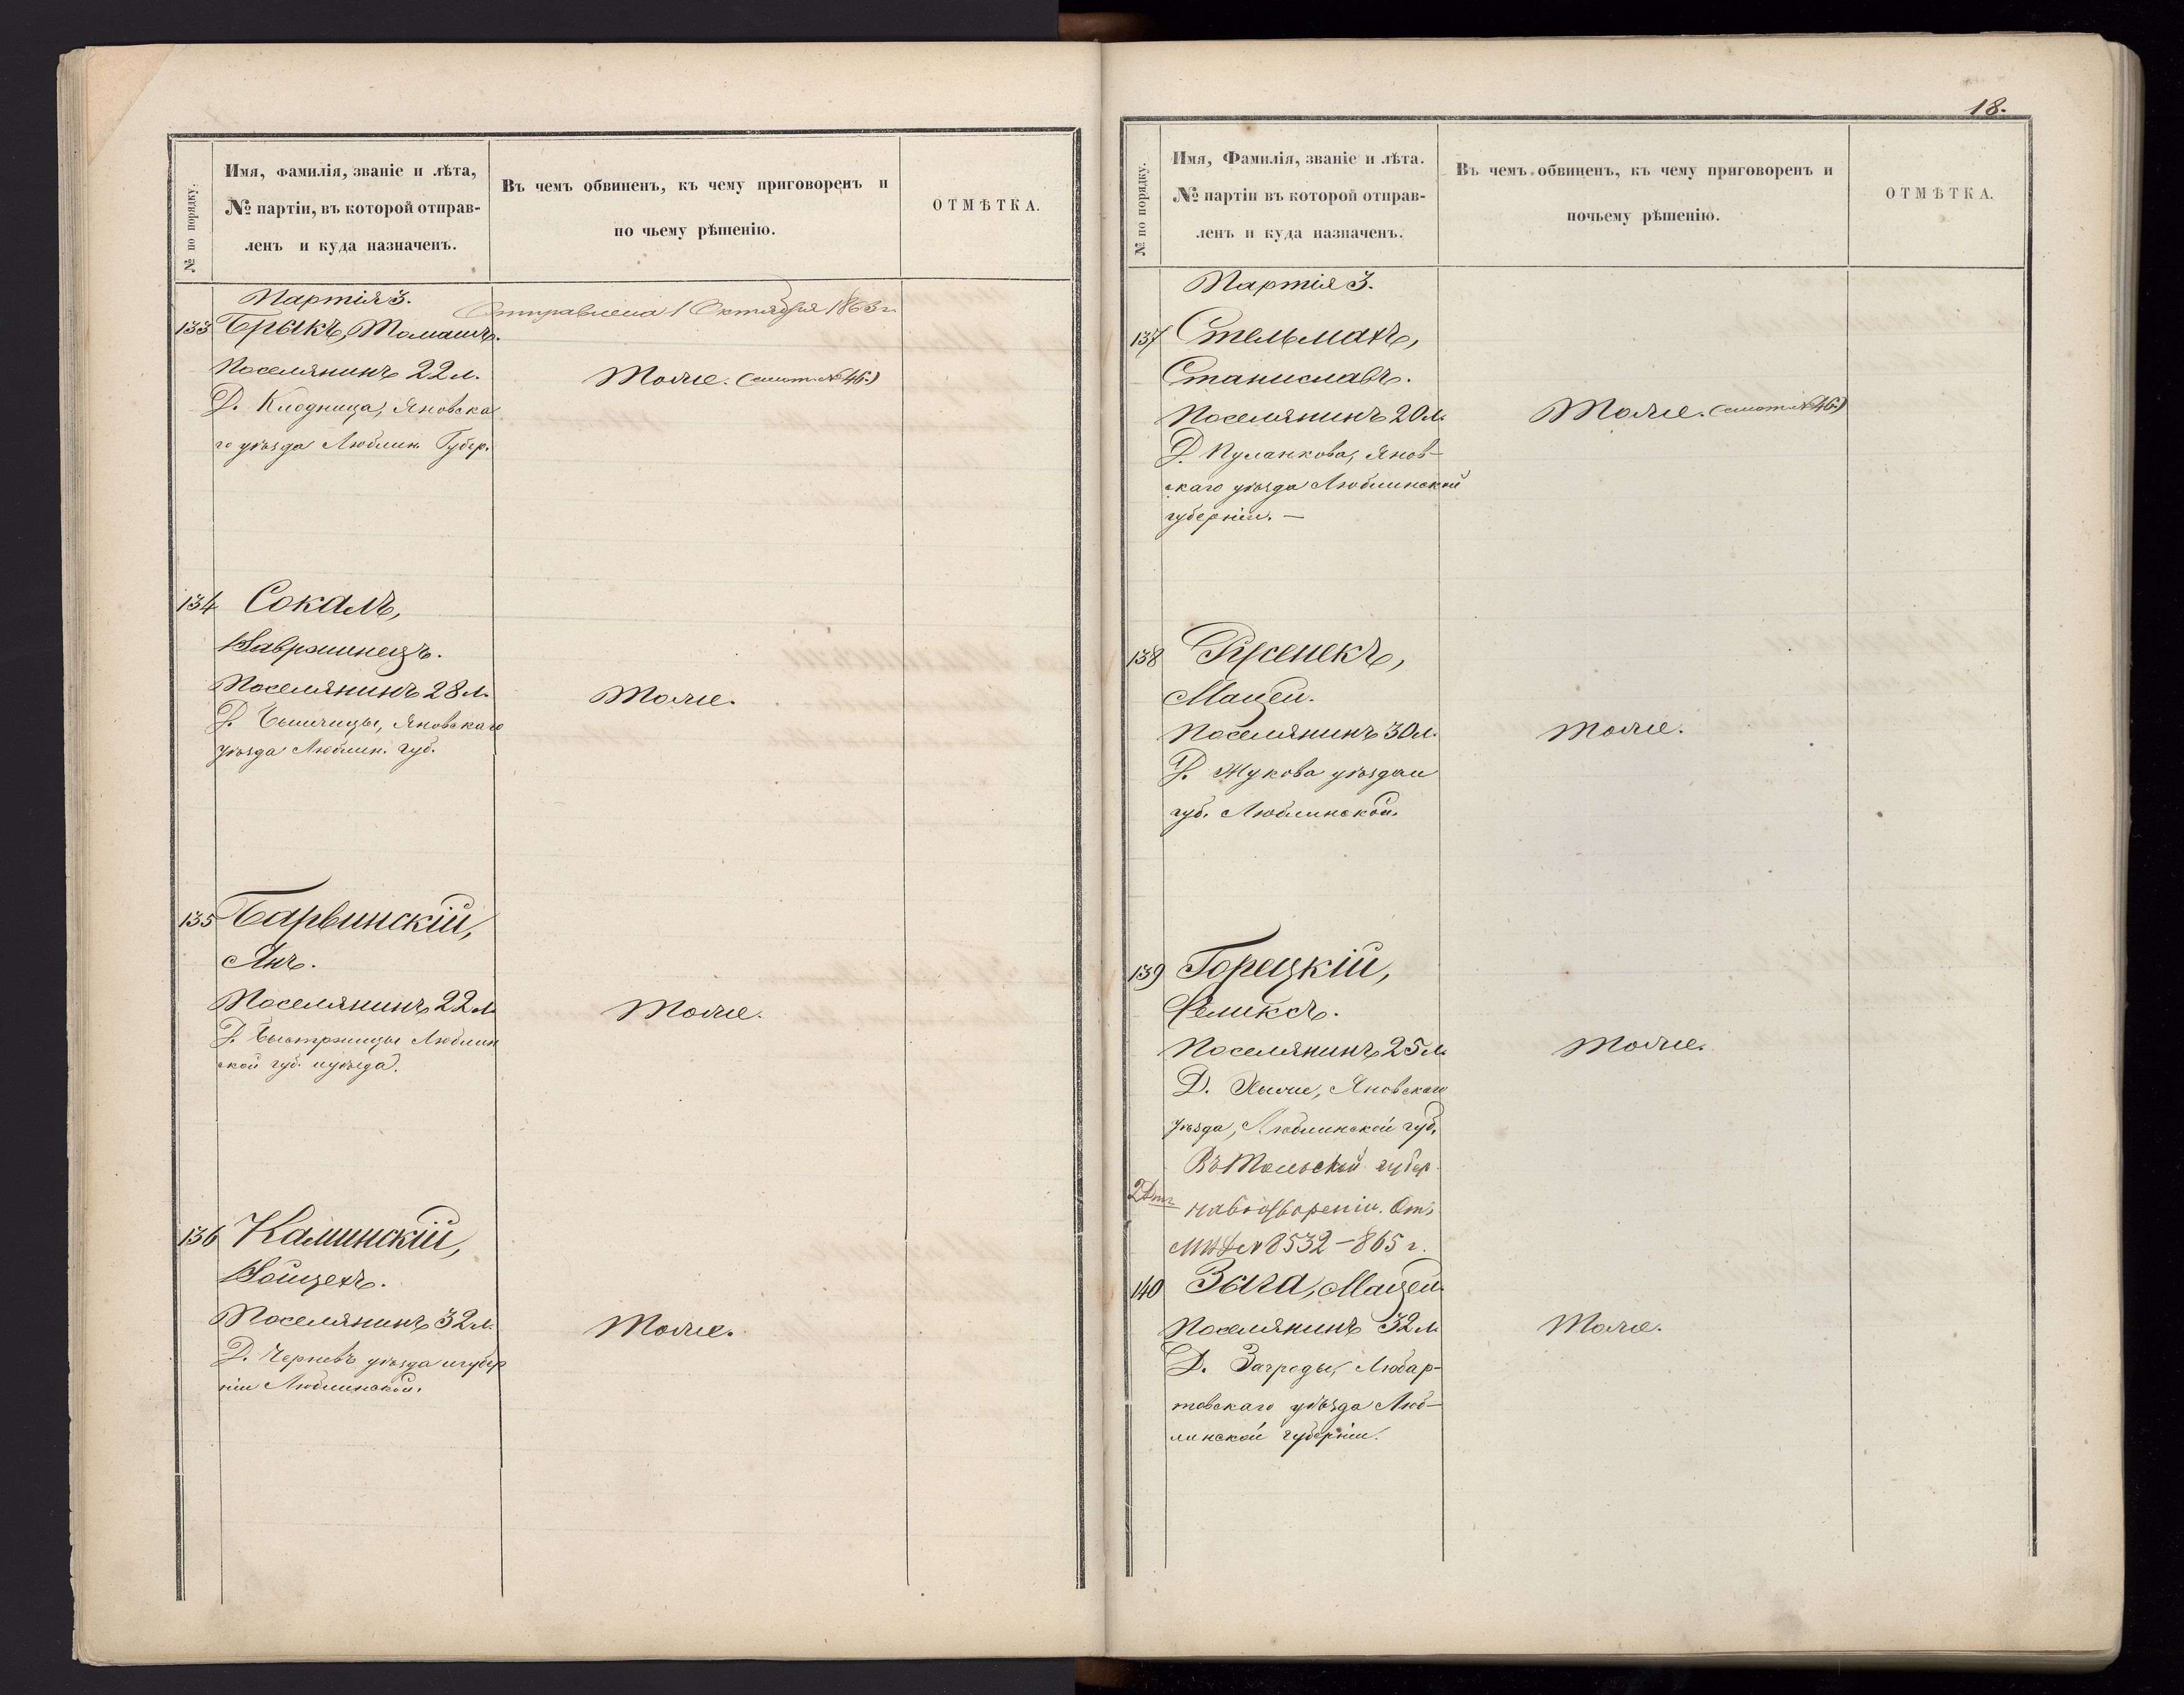 № по порядку.
Имя, фамилія, званіе и лѣта,
№ партіи, въ которой отправ-
ленъ и куда назначенъ.
Въ чемъ обвиненъ, къ чему приговоренъ и
по чьему рѣшенію.
ОТМѢТКА.
Партія 3.
Отправлена 1 Октября 1863 г.
133 Брыкъ, Томашъ.
Поселянинъ 22 л.
Д. Клодница, Яновска
го уѣзда Люблин. Губер.
Тоже. (смот. № 46.)
134 Сокалъ,
Вавршинецъ.
Поселянинъ 28 л.
Д. Яновскаго
уѣзда Люблин. губ.
Тоже.
135 Барвинскій,
Янъ.
Поселянинъ 22 л.
Д. Быстржицы Люблин
ской губ. и уѣзда.
Тоже.
136 Калинскій,
Войцехъ.
Поселянинъ 32 л.
Д. уѣзда и губер
ніи Люблинской.
Тоже.
18.
№ по порядку.
Имя, Фамилія, званіе и лѣта.
№ партіи въ которой отправ-
ленъ и куда назначенъ.
Въ чемъ обвиненъ, къ чему приговоренъ и
почьему рѣшенію.
ОТМѢТКА.
Партія 3.
137 Стельмахъ,
Станиславъ.
Поселянинъ 20 л.
Д. Пуланкова, Янов-
скаго уѣзда Люблинской
губерніи. —
Тоже. (смот. № 46.)
138
Мацей.
Поселянинъ 30 л.
Д. Жукова уѣзда и
губ. Люблинской.
Тоже.
139 Горецкій,
Феликсъ.
Поселянинъ 25 л.
Д. Яновскаго
уѣзда, Люблинской губ.
Въ губер
От.
№ 8532 — 865 г.
Тоже.
140 Зыга, Мацей.
Поселянинъ 32 л.
Д. Загроды, Любар-
товскаго уѣзда Люб-
линской губерніи.
Тоже.